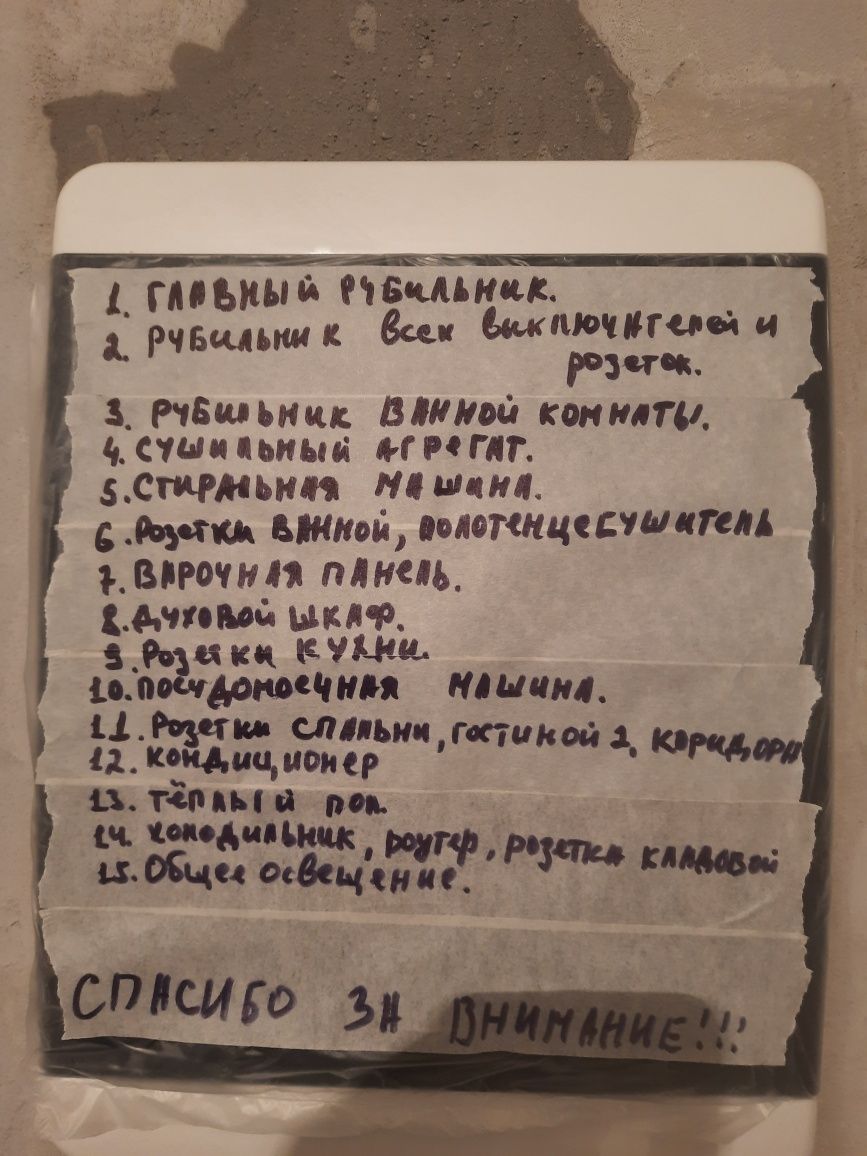 1. ГЛАВНЫЙ РУБИЛЬНИК.
2. РУБИЛЬНИК всех выключателей и
розеток.
3. РУБИЛЬНИК ВАННОЙ КОМНАТЫ.
4. СУШИЛЬНЫЙ АГРЕГАТ.
5. СТИРАЛЬНАЯ МАШИНА.
6. Розетки ВАННОЙ, ПОЛОТЕНЦЕСУШИТЕЛЬ
7. ВАРОЧНАЯ ПАНЕЛЬ.
8. ДУХОВОЙ ШКАФ.
9. Розетки КУХНИ.
10. ПОСУДОМОЕЧНАЯ МАШИНА.
11. Розетки СПАЛЬНИ, ГОСТИНОЙ 2, КОРИДОРА
12. КОНДИЦИОНЕР
13. ТЁПЛЫЙ ПОЛ.
14. ХОЛОДИЛЬНИК, РОУТЕР, РОЗЕТКА КЛАДОВОЙ
15. Общее освещение.
СПАСИБО ЗА ВНИМАНИЕ!!!